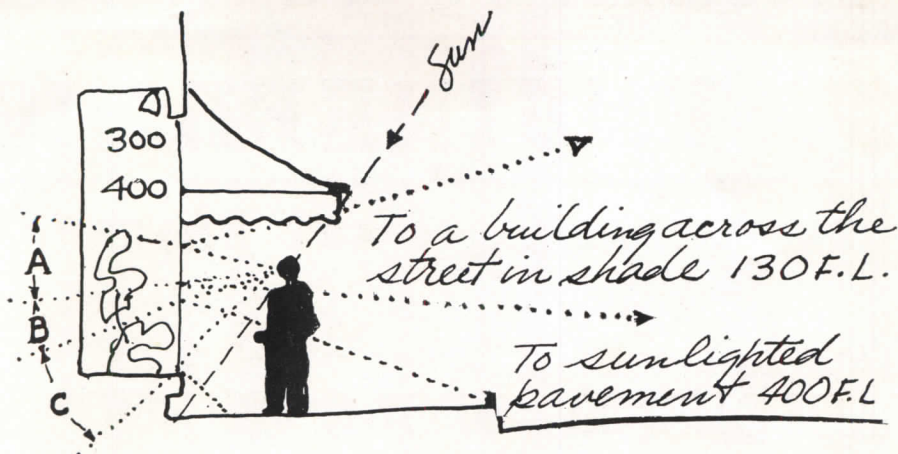 Sun
300
400
To a building across the
street in shade 130 F.L.
A
B
To sunlighted
pavement 400 F.L
C